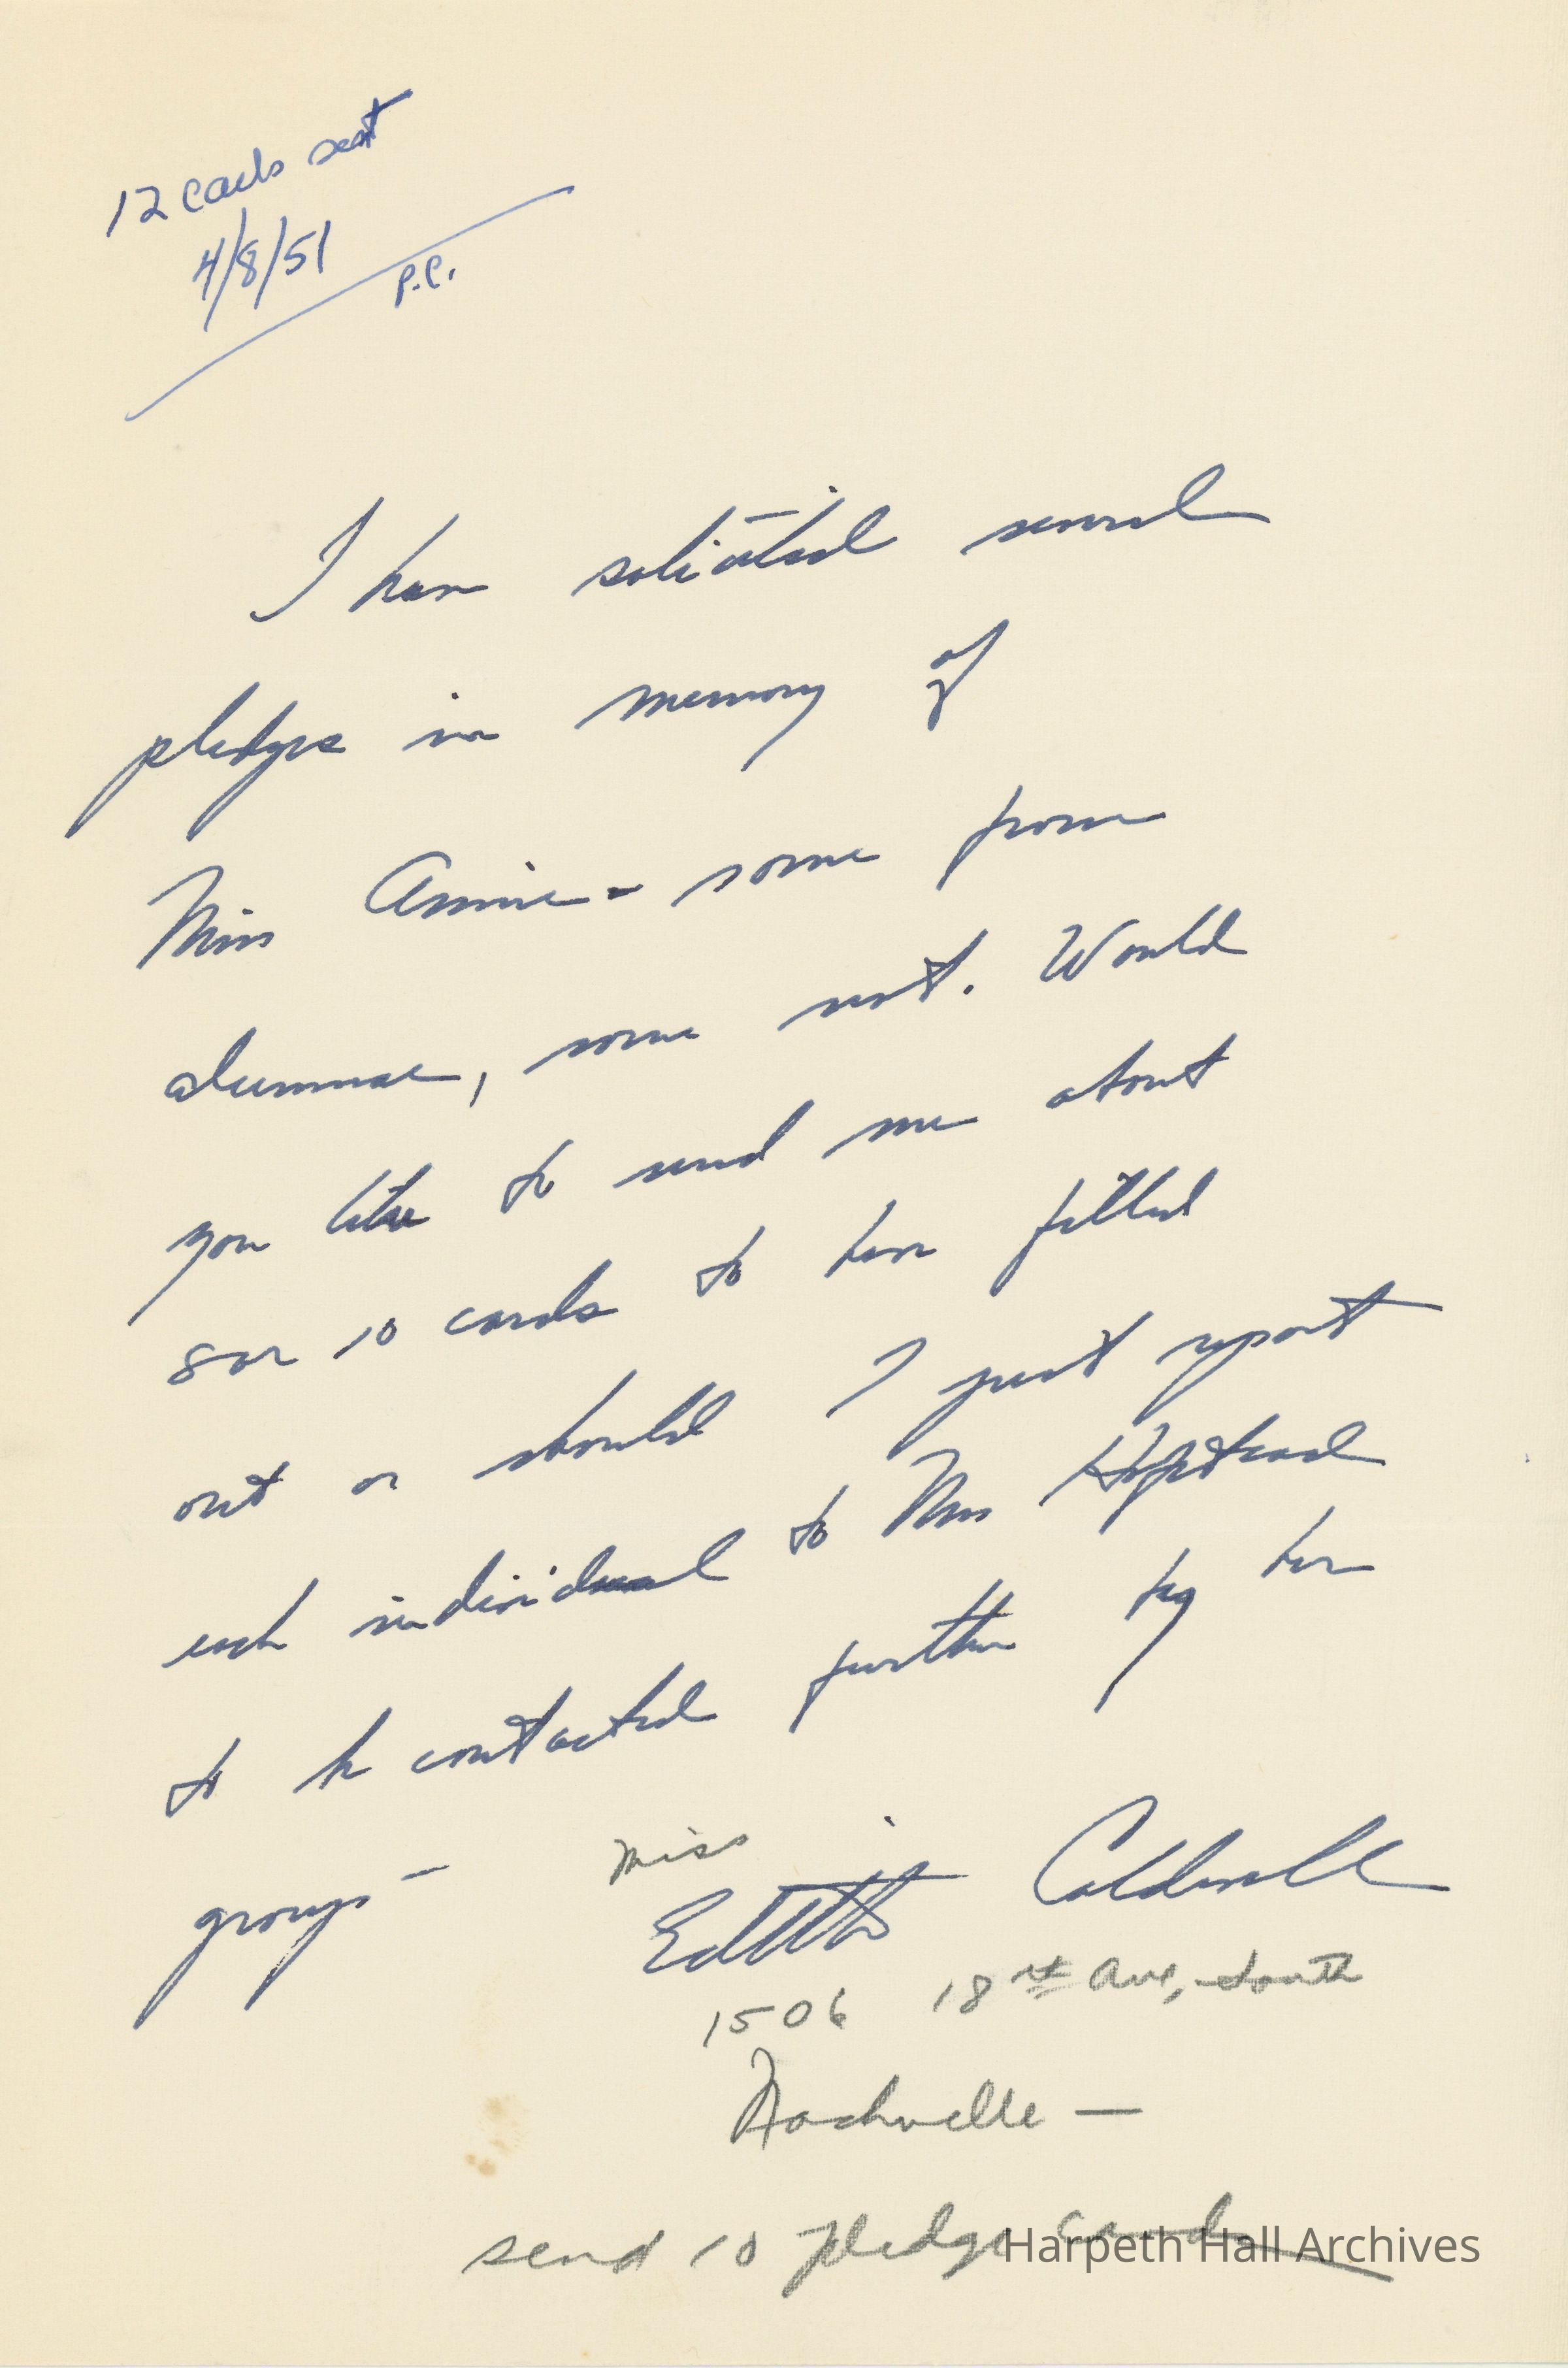 12 cards sent
4/8/51
P.C.
I have solicited several
pledges in memory of
Miss Annie - some from
alumnae, some not. Would
you like to send me about
8 or 10 cards to have filled
out or should I just report
each individual to Mrs Hopstead
to be contacted further by her
group -
Miss
Edith Caldwell
1506 18th Ave, South
Nashville —
send 10 pledge cards
Harpeth Hall Archives